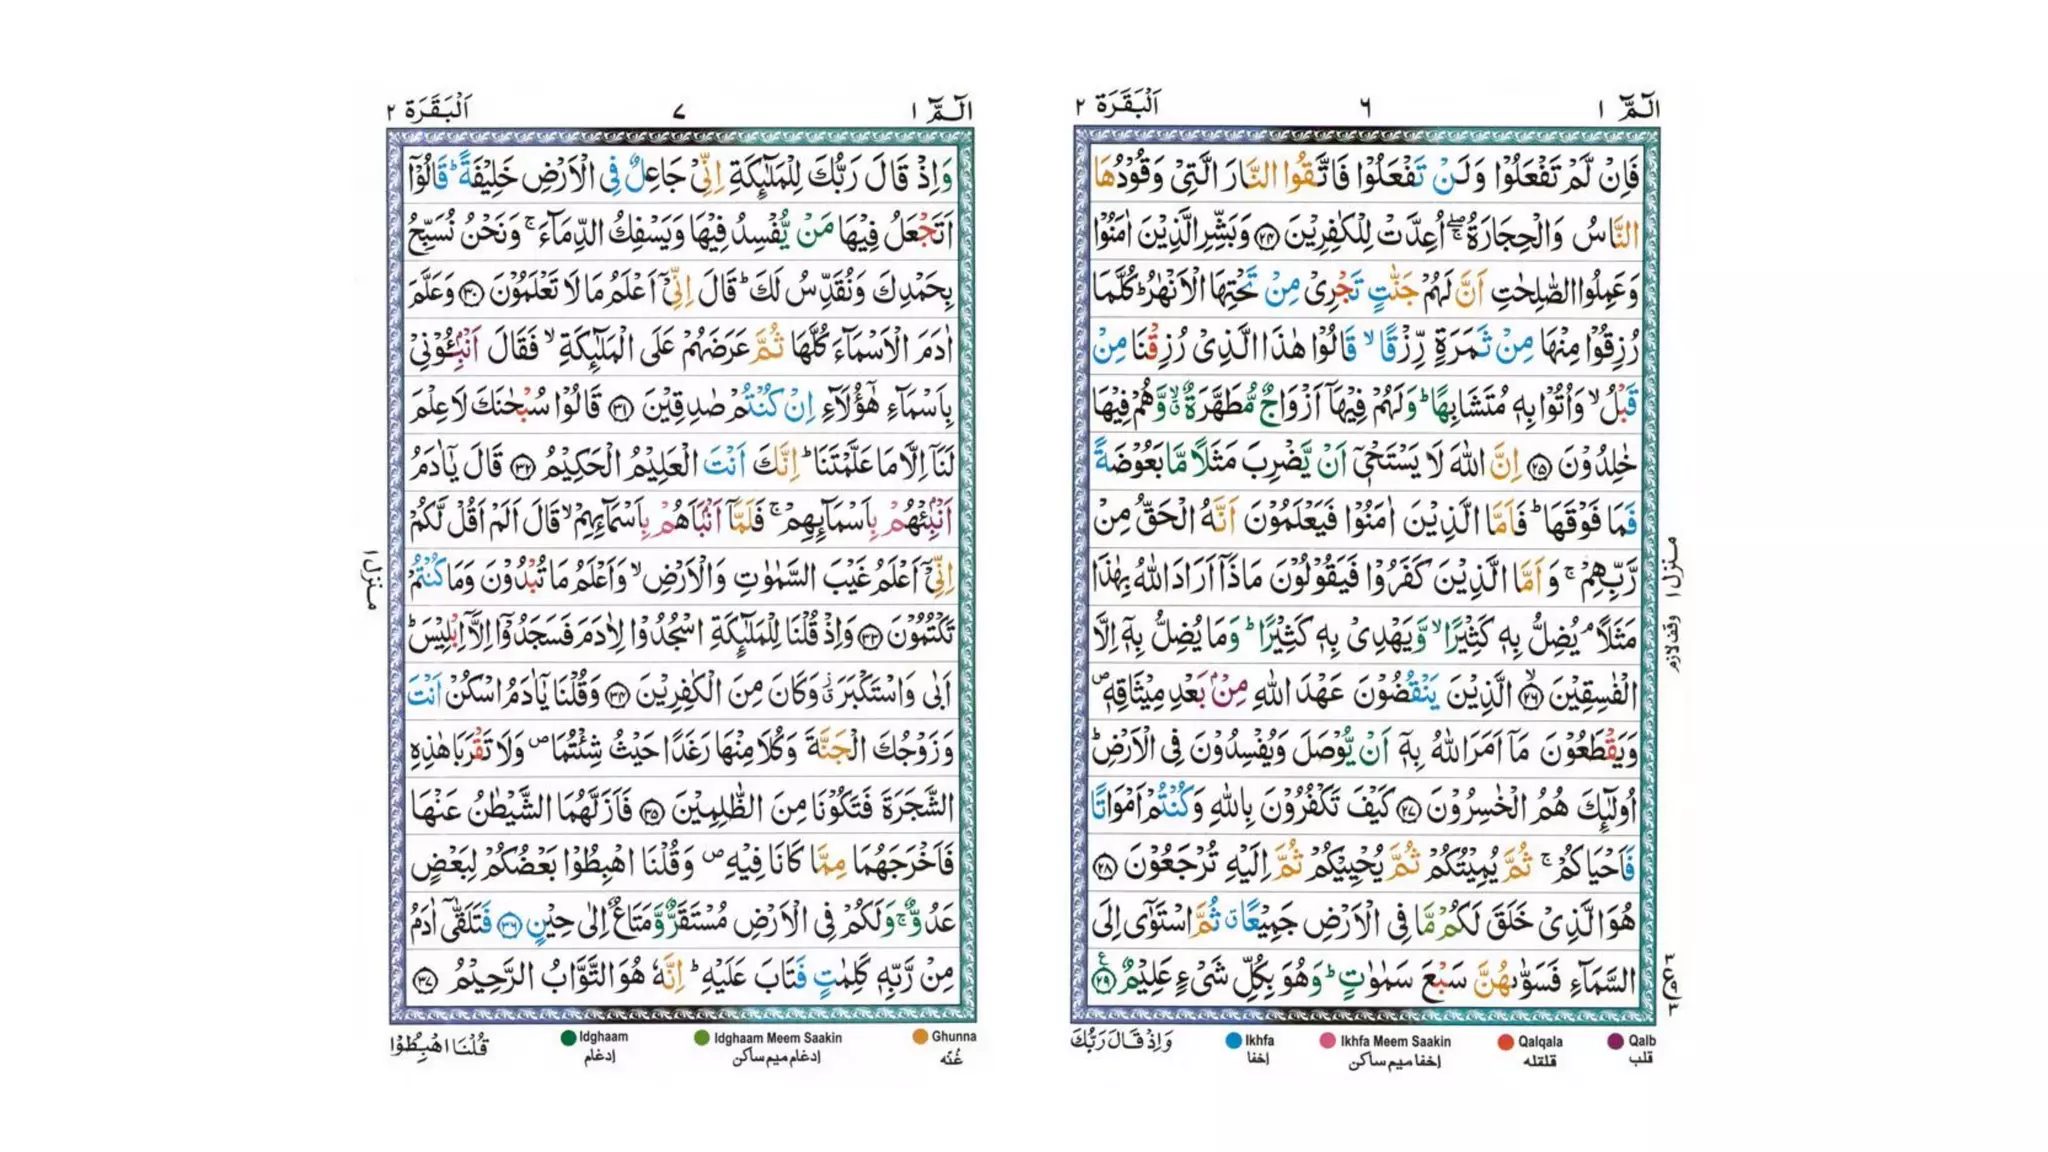 الٓمّٓ ١
٦
اَلْبَقَرَة ٢
فَاِنْ لَّمْ تَفْعَلُوْا وَلَنْ تَفْعَلُوْا فَاتَّقُوا النَّارَ الَّتِیْ وَقُوْدُهَا
النَّاسُ وَالْحِجَارَةُ ۖۚ اُعِدَّتْ لِلْكٰفِرِیْنَ ﴿۲۴﴾ وَبَشِّرِ الَّذِیْنَ اٰمَنُوْا
وَعَمِلُوا الصّٰلِحٰتِ اَنَّ لَهُمْ جَنّٰتٍ تَجْرِیْ مِنْ تَحْتِهَا الْاَنْهٰرُ ؕ كُلَّمَا
رُزِقُوْا مِنْهَا مِنْ ثَمَرَةٍ رِّزْقًا ۙ قَالُوْا هٰذَا الَّذِیْ رُزِقْنَا مِنْ
قَبْلُ ۙ وَاُتُوْا بِهٖ مُتَشَابِهًا ؕ وَلَهُمْ فِیْهَاۤ اَزْوَاجٌ مُّطَهَّرَةٌ ۙۗ وَّهُمْ فِیْهَا
خٰلِدُوْنَ ﴿۲۵﴾ اِنَّ اللّٰهَ لَا یَسْتَحْیٖۤ اَنْ یَّضْرِبَ مَثَلًا مَّا بَعُوْضَةً
فَمَا فَوْقَهَا ؕ فَاَمَّا الَّذِیْنَ اٰمَنُوْا فَیَعْلَمُوْنَ اَنَّهُ الْحَقُّ مِنْ
رَّبِّهِمْ ۚ وَاَمَّا الَّذِیْنَ كَفَرُوْا فَیَقُوْلُوْنَ مَاذَاۤ اَرَادَ اللّٰهُ بِهٰذَا
مَثَلًا ۘ یُضِلُّ بِهٖ كَثِیْرًا ۙ وَّیَهْدِیْ بِهٖ كَثِیْرًا ؕ وَمَا یُضِلُّ بِهٖۤ اِلَّا
الْفٰسِقِیْنَ ﴿۲۶﴾ۙ الَّذِیْنَ یَنْقُضُوْنَ عَهْدَ اللّٰهِ مِنْۢ بَعْدِ مِیْثَاقِهٖ ۪
وَیَقْطَعُوْنَ مَاۤ اَمَرَ اللّٰهُ بِهٖۤ اَنْ یُّوْصَلَ وَیُفْسِدُوْنَ فِی الْاَرْضِ ؕ
اُولٰٓئِكَ هُمُ الْخٰسِرُوْنَ ﴿۲۷﴾ كَیْفَ تَكْفُرُوْنَ بِاللّٰهِ وَكُنْتُمْ اَمْوَاتًا
فَاَحْیَاكُمْ ۚ ثُمَّ یُمِیْتُكُمْ ثُمَّ یُحْیِیْكُمْ ثُمَّ اِلَیْهِ تُرْجَعُوْنَ ﴿۲۸﴾
هُوَ الَّذِیْ خَلَقَ لَكُمْ مَّا فِی الْاَرْضِ جَمِیْعًا ۗ ثُمَّ اسْتَوٰۤی اِلَی
السَّمَآءِ فَسَوّٰىهُنَّ سَبْعَ سَمٰوٰتٍ ؕ وَهُوَ بِكُلِّ شَیْءٍ عَلِیْمٌ ﴿۲۹﴾
منزل ١
وقف لازم
ع
Qalb
قلب
Qalqala
قلقله
Ikhfa Meem Saakin
اخفا میم ساکن
Ikhfa
اخفا
وَاِذْ قَالَ رَبُّكَ
الٓمّٓ ١
٧
اَلْبَقَرَة ٢
وَاِذْ قَالَ رَبُّكَ لِلْمَلٰٓئِكَةِ اِنِّیْ جَاعِلٌ فِی الْاَرْضِ خَلِیْفَةً ؕ قَالُوْۤا
اَتَجْعَلُ فِیْهَا مَنْ یُّفْسِدُ فِیْهَا وَیَسْفِكُ الدِّمَآءَ ۚ وَنَحْنُ نُسَبِّحُ
بِحَمْدِكَ وَنُقَدِّسُ لَكَ ؕ قَالَ اِنِّیْۤ اَعْلَمُ مَا لَا تَعْلَمُوْنَ ﴿۳۰﴾ وَعَلَّمَ
اٰدَمَ الْاَسْمَآءَ كُلَّهَا ثُمَّ عَرَضَهُمْ عَلَی الْمَلٰٓئِكَةِ ۙ فَقَالَ اَنْۢبِـُٔوْنِیْ
بِاَسْمَآءِ هٰۤؤُلَآءِ اِنْ كُنْتُمْ صٰدِقِیْنَ ﴿۳۱﴾ قَالُوْا سُبْحٰنَكَ لَا عِلْمَ
لَنَاۤ اِلَّا مَا عَلَّمْتَنَا ؕ اِنَّكَ اَنْتَ الْعَلِیْمُ الْحَكِیْمُ ﴿۳۲﴾ قَالَ یٰۤاٰدَمُ
اَنْۢبِئْهُمْ بِاَسْمَآئِهِمْ ۚ فَلَمَّاۤ اَنْۢبَاَهُمْ بِاَسْمَآئِهِمْ ۙ قَالَ اَلَمْ اَقُلْ لَّكُمْ
اِنِّیْۤ اَعْلَمُ غَیْبَ السَّمٰوٰتِ وَالْاَرْضِ ۙ وَاَعْلَمُ مَا تُبْدُوْنَ وَمَا كُنْتُمْ
تَكْتُمُوْنَ ﴿۳۳﴾ وَاِذْ قُلْنَا لِلْمَلٰٓئِكَةِ اسْجُدُوْا لِاٰدَمَ فَسَجَدُوْۤا اِلَّاۤ اِبْلِیْسَ ؕ
اَبٰی وَاسْتَكْبَرَ ۗ وَكَانَ مِنَ الْكٰفِرِیْنَ ﴿۳۴﴾ وَقُلْنَا یٰۤاٰدَمُ اسْكُنْ اَنْتَ
وَزَوْجُكَ الْجَنَّةَ وَكُلَا مِنْهَا رَغَدًا حَیْثُ شِئْتُمَا ۪ وَلَا تَقْرَبَا هٰذِهِ
الشَّجَرَةَ فَتَكُوْنَا مِنَ الظّٰلِمِیْنَ ﴿۳۵﴾ فَاَزَلَّهُمَا الشَّیْطٰنُ عَنْهَا
فَاَخْرَجَهُمَا مِمَّا كَانَا فِیْهِ ۪ وَقُلْنَا اهْبِطُوْا بَعْضُكُمْ لِبَعْضٍ
عَدُوٌّ ۚ وَلَكُمْ فِی الْاَرْضِ مُسْتَقَرٌّ وَّمَتَاعٌ اِلٰی حِیْنٍ ﴿۳۶﴾ فَتَلَقّٰۤی اٰدَمُ
مِنْ رَّبِّهٖ كَلِمٰتٍ فَتَابَ عَلَیْهِ ؕ اِنَّهٗ هُوَ التَّوَّابُ الرَّحِیْمُ ﴿۳۷﴾
منزل ١
Ghunna
غُنّه
Idghaam Meem Saakin
ادغام میم ساکن
Idghaam
ادغام
قُلْنَا اهْبِطُوْا